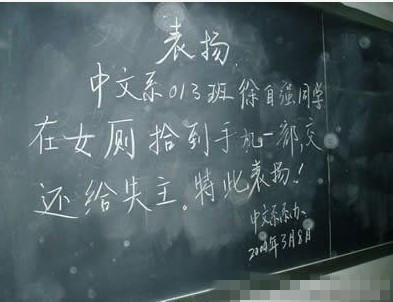 表扬
中文系013班徐自强同学
在女厕拾到手机一部,交
还给失主。特此表扬!
中文系系办.
3月8日